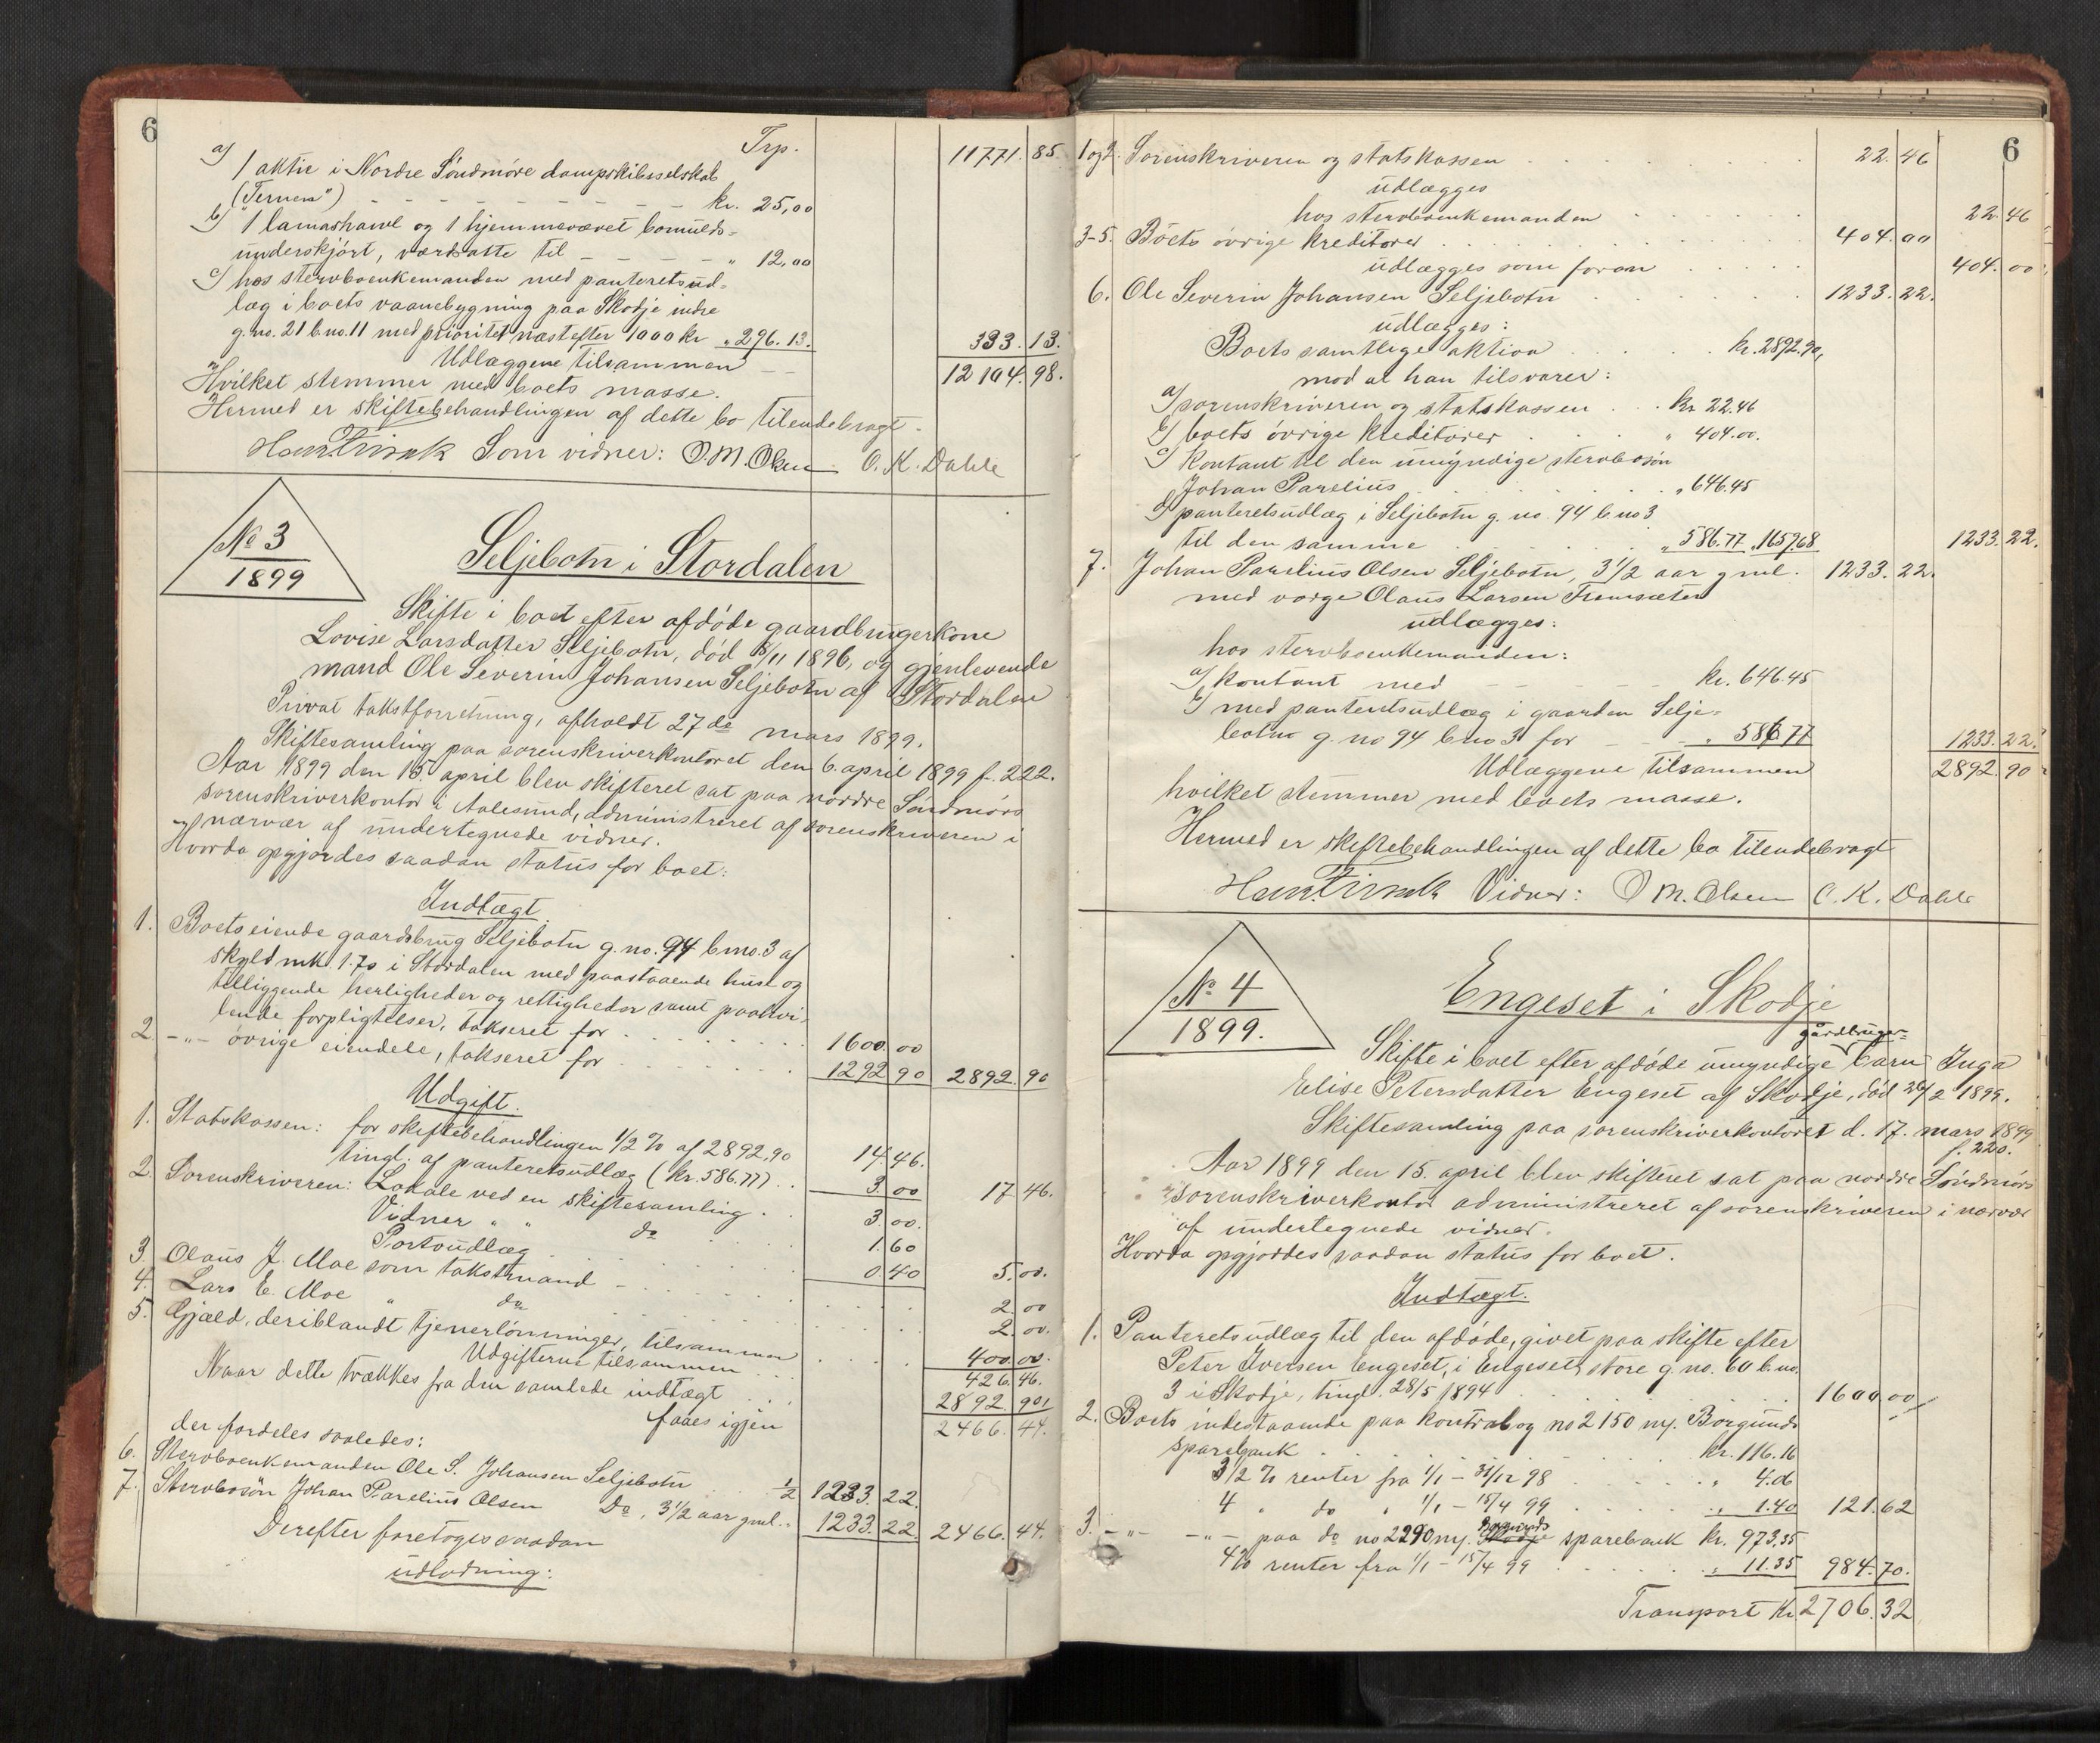 6
Trp. 11771. 85.
a) 1 aktie i Nordre Söndmöre dampskibsselskab
("Ternen") - - - - - - kr. 25,00
b) 1 lamashawl og 1 hjemmevævet bomulds-
underskjört, værdsatte til - - - - " 12,00
c) hos stervboenkemanden med panteretsud-
læg i boets vaanebygning paa Skodje indre
g. no. 21 b. no. 11 med prioritet næst efter 1000 kr " 296. 13. 333. 13.
Udlæggene tilsammen - - 12104. 98.
Hvilket stemmer med boets masse.
Hermed er skiftebehandlingen af dette bo tilendebragt.
Som vidner: O. M. Olsen O. K. Dahle
No 3
1899
Seljebotn i Stordalen
Skifte i boet efter afdöde gaardbrugerkone
Lovise Larsdatter Seljebotn, död 8/11 1896, og gjenlevende
mand Ole Severin Johansen Seljebotn af Stordalen
Privat takstforretning, afholdt 27de mars 1899.
Skiftesamling paa sorenskriverkontoret den 6. april 1899 f. 222.
Aar 1899 den 15. april blev skifteret sat paa nordre Söndmörs
sorenskriverkontor i Aalesund, administreret af sorenskriveren i
nærvær af undertegnede vidner.
Hvorda opgjordes saadan status for boet:
Indtægt
1. Boets eiende gaardsbrug Seljebotn g. no. 94 b. no. 3 af
skyld mk. 1.70 i Stordalen med paastaaende huse og
tilliggende herligheder og rettigheder samt paahvi-
lende forpligtelser, takseret for . . . . 1600. 00
2. -"- övrige eiendele, takseret for . . . . 1292 90 2892. 90
Udgift.
1. Statskassen: for skiftebehandlingen 1/2 % af 2892,90 14. 46.
tingl. af panteretsudlæg (kr. 586.77) . . 3. 00 17 46.
2. Sorenskriveren: Lokale ved en skiftesamling . 3. 00.
Vidner " " do . . 1. 60
Portoudlæg . . . . 0. 40 5. 00.
3. Olaus J. Moe som takstmand - . . . . 2. 00
4. Lars E. Moe " do . . . . 2. 00.
5. Gjæld, deriblandt tjenerlönninger, tilsammen . . . . 400. 00.
Udgifterne tilsammen . . . 426. 46.
Naar dette trækkes fra den samlede indtægt . . . 2892. 90,
faaes igjen 2466. 44.
der fordeles saaledes:
6. Stervboenkemanden Ole S. Johansen Seljebotn . . 1/2 1233. 22.
7. Stervbosön Johan Parelius Olsen Do, 3 1/2 aar gml. " 1233. 22. 2466. 44.
Derefter foretoges saadan
udlodning:
6
1 og 2. Sorenskriveren og statskassen . . . . 22. 46
udlægges
hos stervboenkemanden . . . . 22. 46
3-5. Boets övrige kreditorer . . . . 404. 00
udlægges som foran . . . . 404. 00
6. Ole Severin Johansen Seljebotn . . . . 1233. 22.
udlægges:
Boets samtlige aktiva . . . . kr. 2892.90,
mod at han tilsvarer:
a) sorenskriveren og statskassen . . . kr. 22.46
b) boets övrige kreditorer . . . . " 404.00.
c) kontant til den umyndige stervbosön
Johan Parelius . . . . " 646.45
d) panteretsudlæg i Seljebotn g. no. 94 b. no 3
til den samme . . . . " 586.77 " 1659.68 1233. 22.
7. Johan Parelius Olsen Seljebotn, 3 1/2 aar gml. 1233. 22.
med værge Olaus Larsen Fremsæter
udlægges:
hos stervboenkemanden:
a) kontant med - - - - kr. 646.45
b) med panteretsudlæg i gaarden Selje-
botn g. no 94 b. no 3 for - - - " 586 77 1233. 22.
Udlæggene tilsammen 2892. 90
hvilket stemmer med boets masse.
Hermed er skiftebehandlingen af dette bo tilendebragt
Vidner: O M. Olsen O. K. Dahle
No 4
1899.
Engeset i Skodje
Skifte i boet efter afdöde umyndige gårdbruger- barn Inga
Elise Petersdatter Engeset af Skodje, död 26/2 1899.
Skiftesamling paa sorenskriverkontoret d. 17. mars 1899
f. 220.
Aar 1899 den 15. april blev skifteret sat paa nordre Söndmörs
sorenskriverkontor administreret af sorenskriveren i nærvær
af undertegnede vidner.
Hvorda opgjordes saadan status for boet.
Indtægt.
1. Panteretsudlæg til den afdöde, givet paa skifte efter
Peter Iversen Engeset, i Engeset store g. no. 60 b. no.
3 i Skodje, tingl. 28/5 1894 . . . . 1600. 00
2. Boets indestaaende paa kontrabog no 2150 ny. Borgunds
sparebank . . . . kr. 116.16
3 1/2 % renter fra 1/1 - 31/12 98 . . . . " 4.06
4 " do " 1/1 - 15/4 99 . . . . " 1.40 121. 62
3. -"- -"- paa do no 2290 ny. Skodje Borgunds sparebank kr. 973.35
4% renter fra 1/1 - 15/4 99 . . . . " 11.35 984. 70.
Transport kr 2706. 32